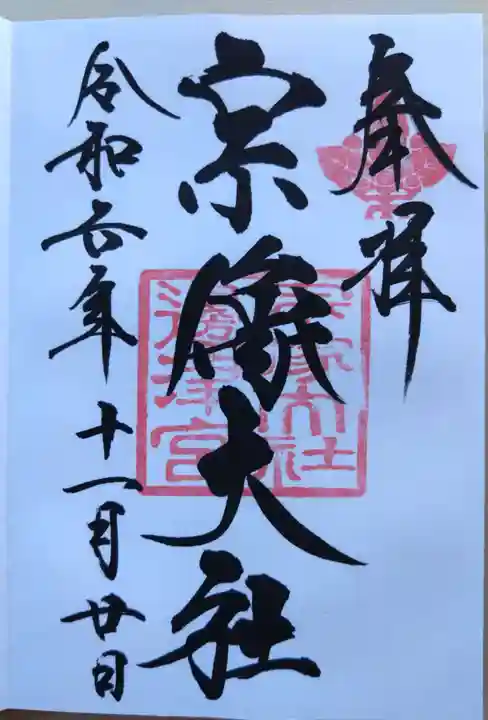 奉拝
宗像大社
令和六年十一月廿日
宗像大社
邊津宮